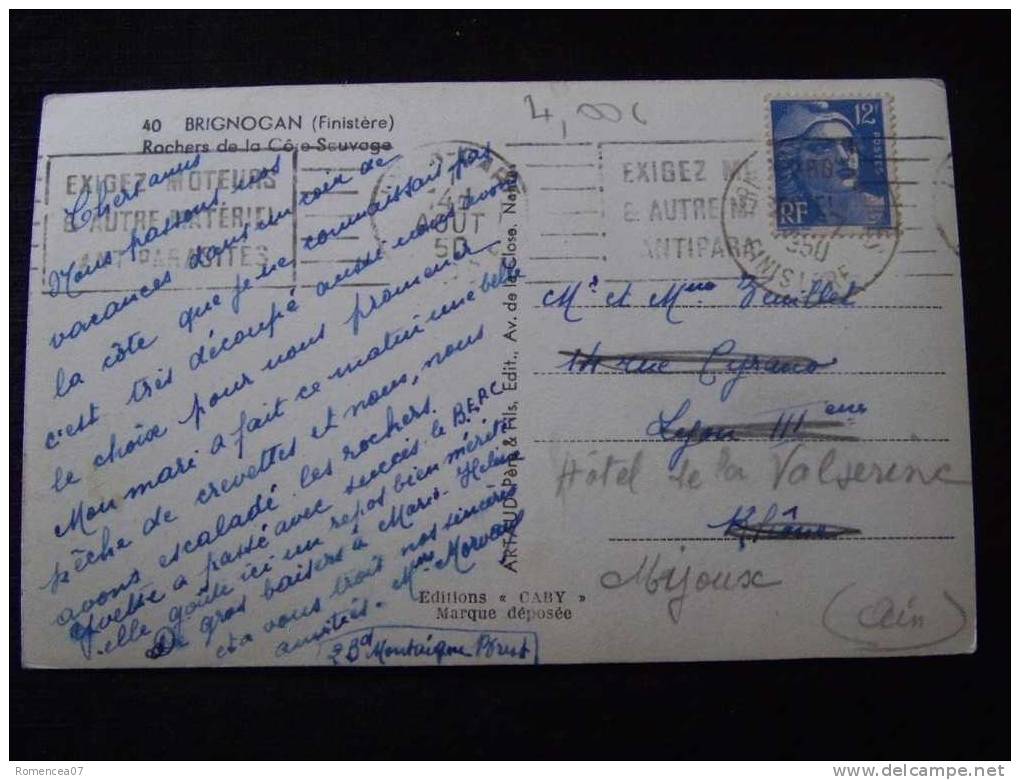 40 BRIGNOGAN (Finistère)
Rochers de la Côte Sauvage
4,00€
12F
POSTES
RF
EXIGEZ MOTEURS
& AUTRE MATÉRIEL
ANTIPARASITES
AOUT
50
EXIGEZ M
& AUTRE M
ANTIPARA
1950
FINISTÈRE
Chers amis
Nous passons nos
vacances dans un coin de
la côte que je ne connaissais pas
c'est très découpé aussi nous avons
le choix pour nous promener
Mon mari a fait ce matin une belle
pêche de crevettes et nous, nous
avons escaladé les rochers.
Yvette a passé avec succès le B.E.P.C
elle goûte ici un repos bien mérité
De gros baisers à Marie-Hélène
et a vous trois nos sincères
amitiés. Mme Morvan
2 Bd Montaigne Brest
ARTAUD Père & Fils, Edit., Av. de la Close. Nantes
Editions « GABY »
Marque déposée
Mr et Mme
14 rue Cyrano
Lyon IIIeme
Hôtel de la Valserine
Rhône
Mijoux
(Ain)
Romencea07
delcampe.net